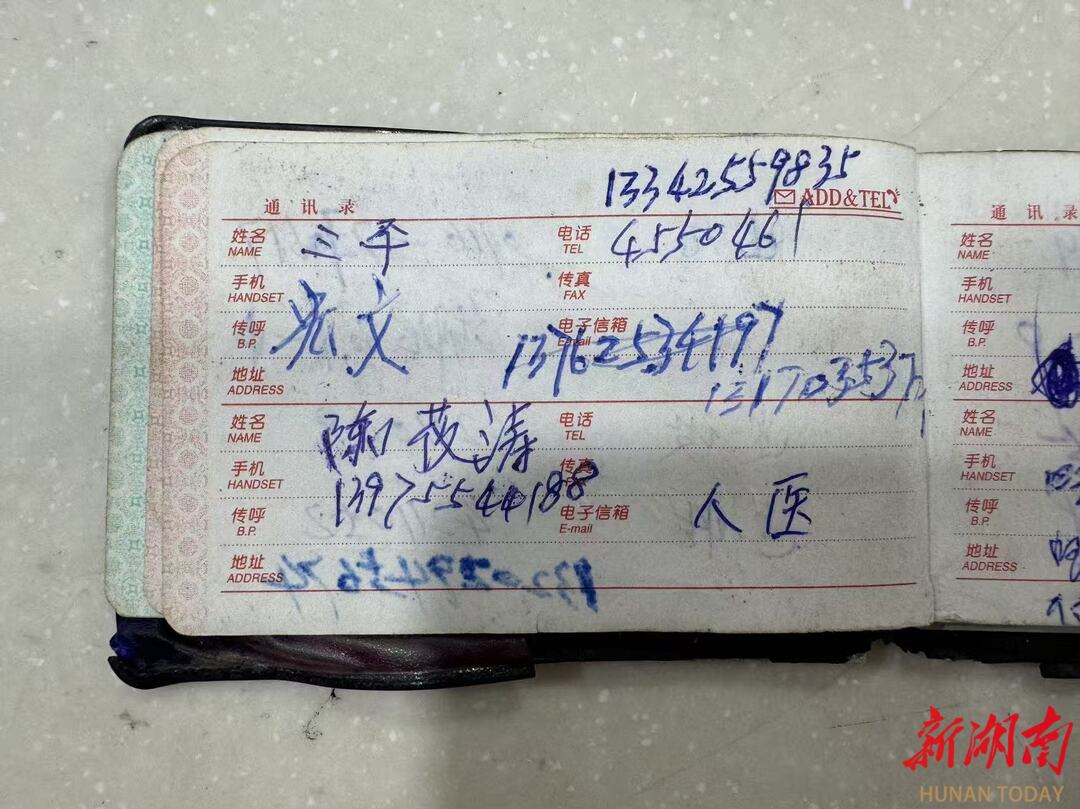 13342559835
通讯录 ADD&TEL
姓名 NAME 三平 电话 TEL 4550461
手机 HANDSET 传真 FAX
传呼 B.P. 文 电子信箱 E-mail 13762534197
地址 ADDRESS
姓名 NAME 陈茂涛 电话 TEL
手机 HANDSET 13975544188 传真
传呼 B.P. 电子信箱 E-mail 人医
地址 ADDRESS
通讯录
姓名 NAME
手机 HANDSET
传呼 B.P.
地址 ADDRESS
姓名 NAME
手机 HANDSET
传呼 B.P.
地址 ADDRESS
新湖南
HUNAN TODAY